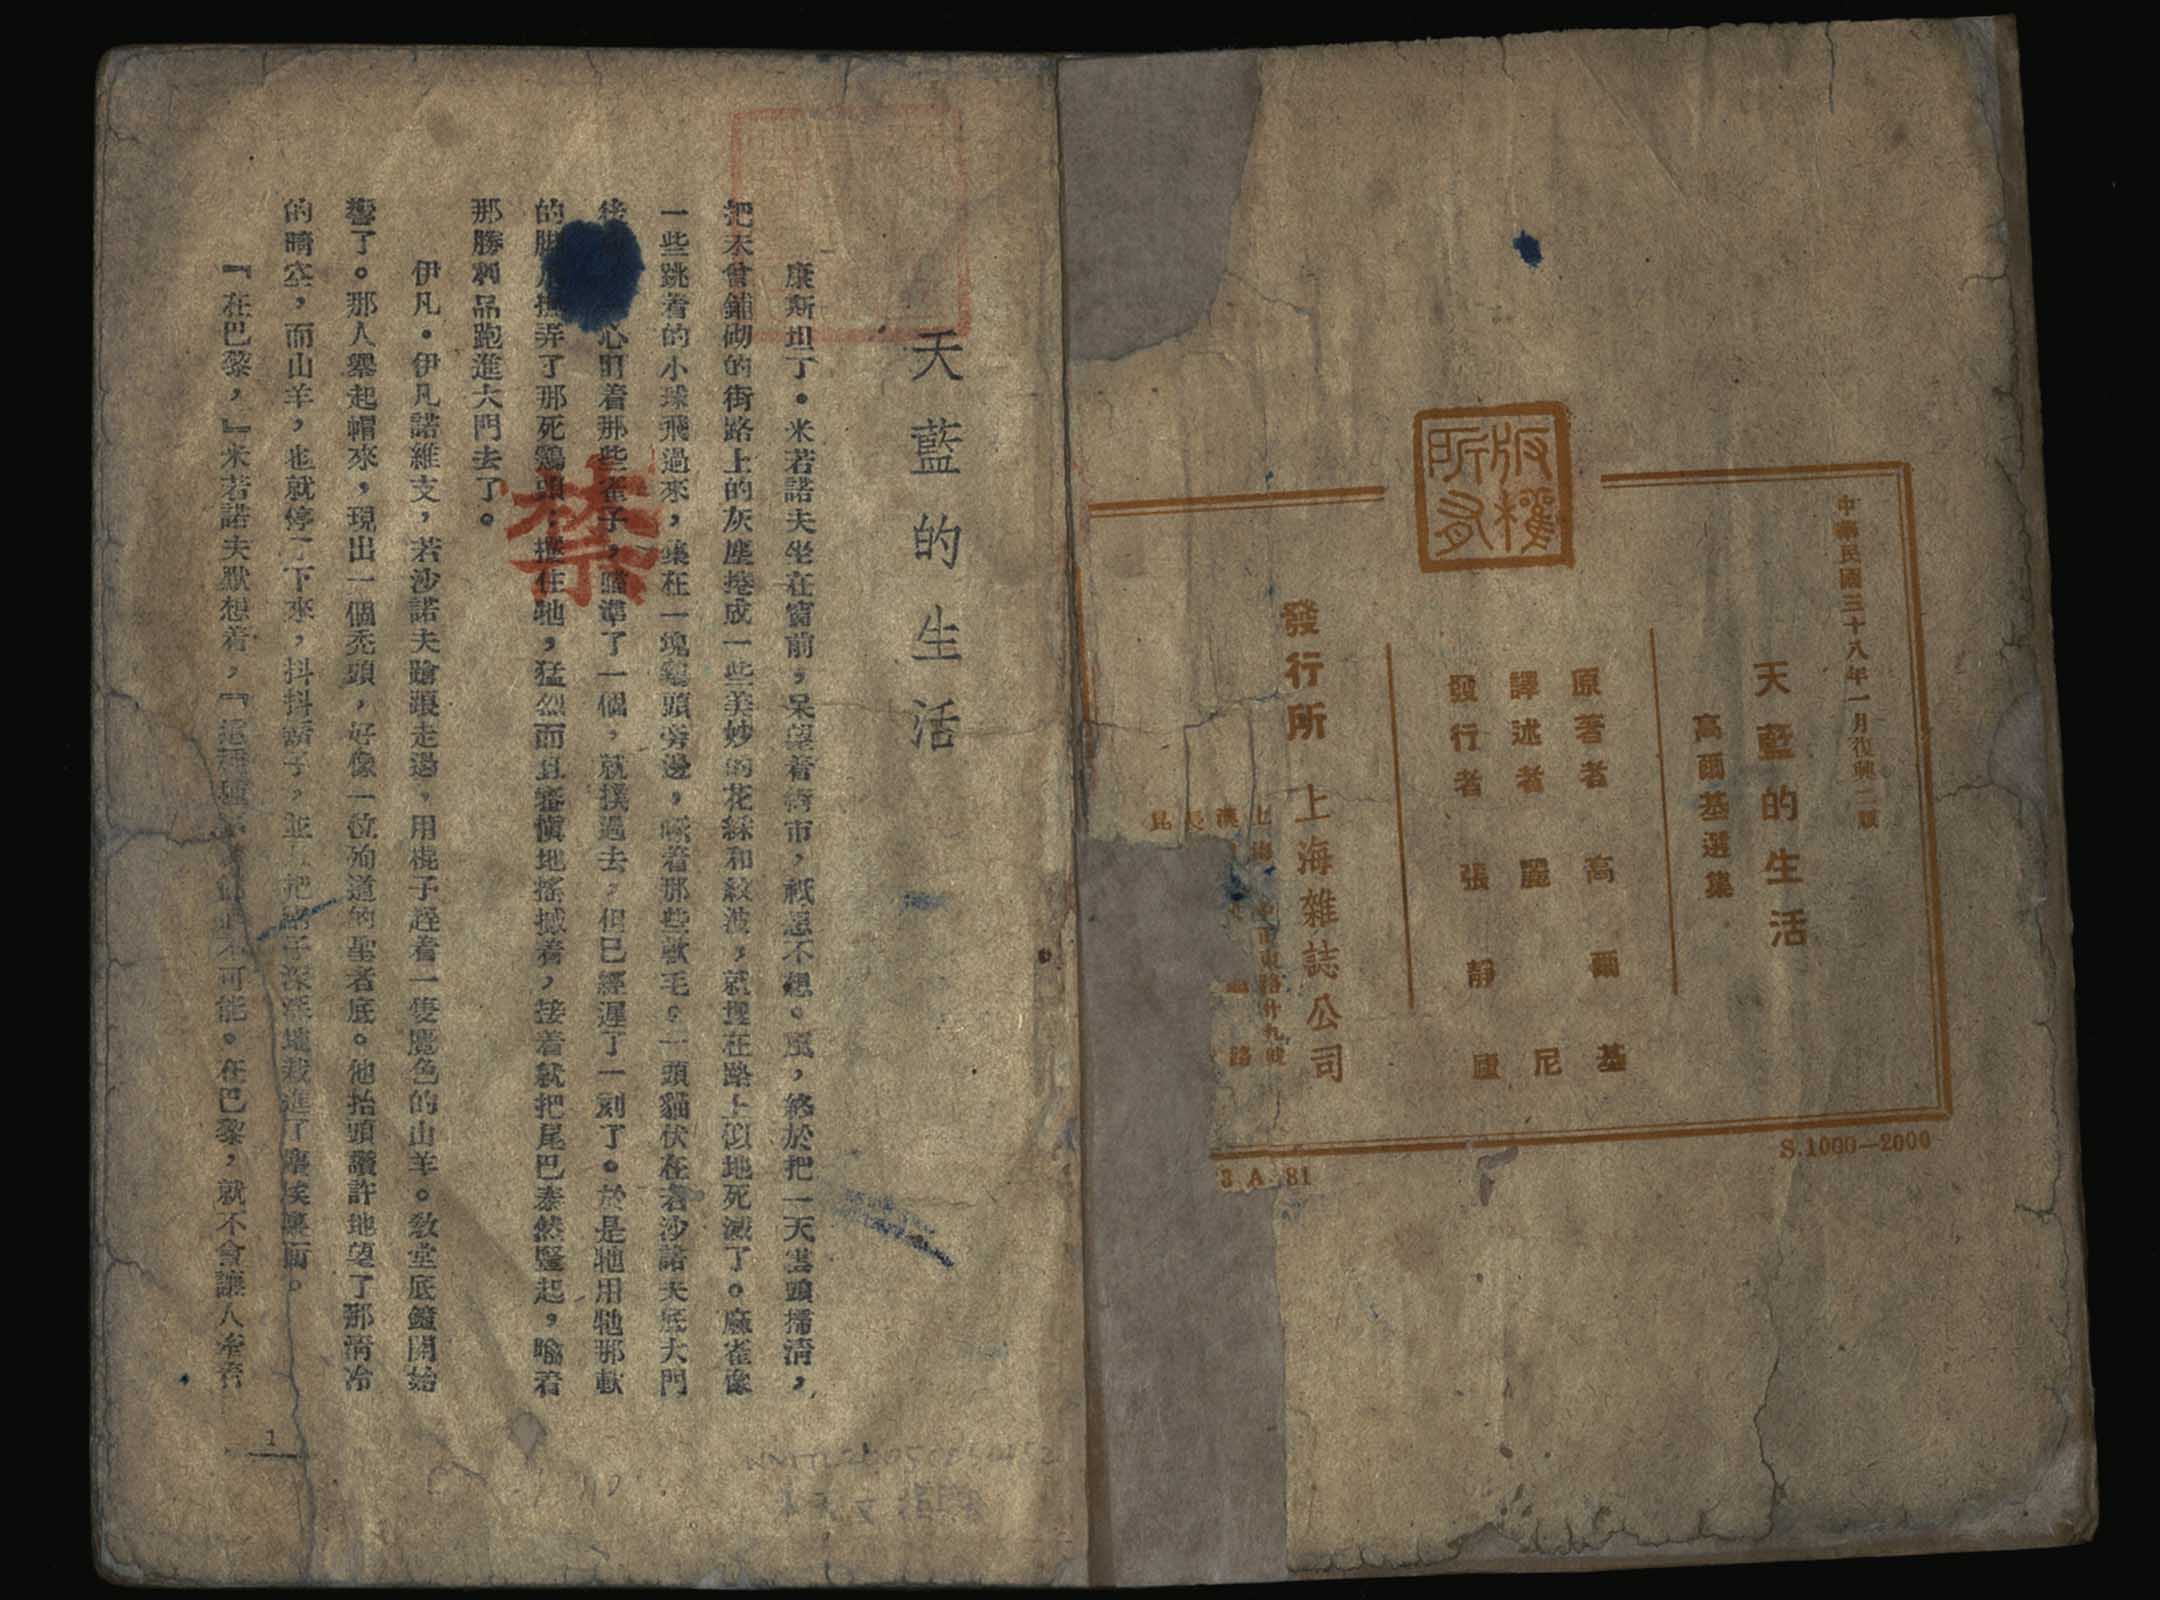 版權
所有
中華民國三十八年一月復興二版
天藍的生活
高爾基選集
原著者 高爾基
譯述者 麗尼
發行者 張靜廬
發行所 上海雜誌公司
S.1000—2000
3 A 81
天藍的生活
康斯坦丁。米若諾夫坐在窗前，呆望着街市，祇想不想。風，終於把一天雲頭掃清，
把未曾鋪砌的街路上的灰塵捲成一些美妙的花綵和紋波，就埋在路上似地死滅了。麻雀像
一些跳着的小球飛過來，集在一塊鷄頭旁邊，啄着那些軟毛。一頭貓伏在若沙諾夫底大門
後 心盯着那些雀子，瞄準了一個，就撲過去，但已經遲了一刻了。於是牠用牠那軟
的脚 撫弄了那死鷄頭，攫住牠，猛烈而且審愼地搖撼着，接着就把尾巴泰然豎起，喻着
那勝利品跑進大門去了。
伊凡。伊凡諾維支，若沙諾夫蹌踉走過，用棍子趕着一隻鷹色的山羊。敎堂底鐘開始
響了。那人舉起帽來，現出一個禿頭，好像一位殉道的聖者底。他抬頭讚許地望了那淸冷
的晴空，而山羊，也就停了下來，抖抖鬍子，並且把蹄子深深地栽進了塵埃裏面。
『在巴黎，』米若諾夫默想着，『這種 不可能。在巴黎，就不會讓人牽着
1
禁